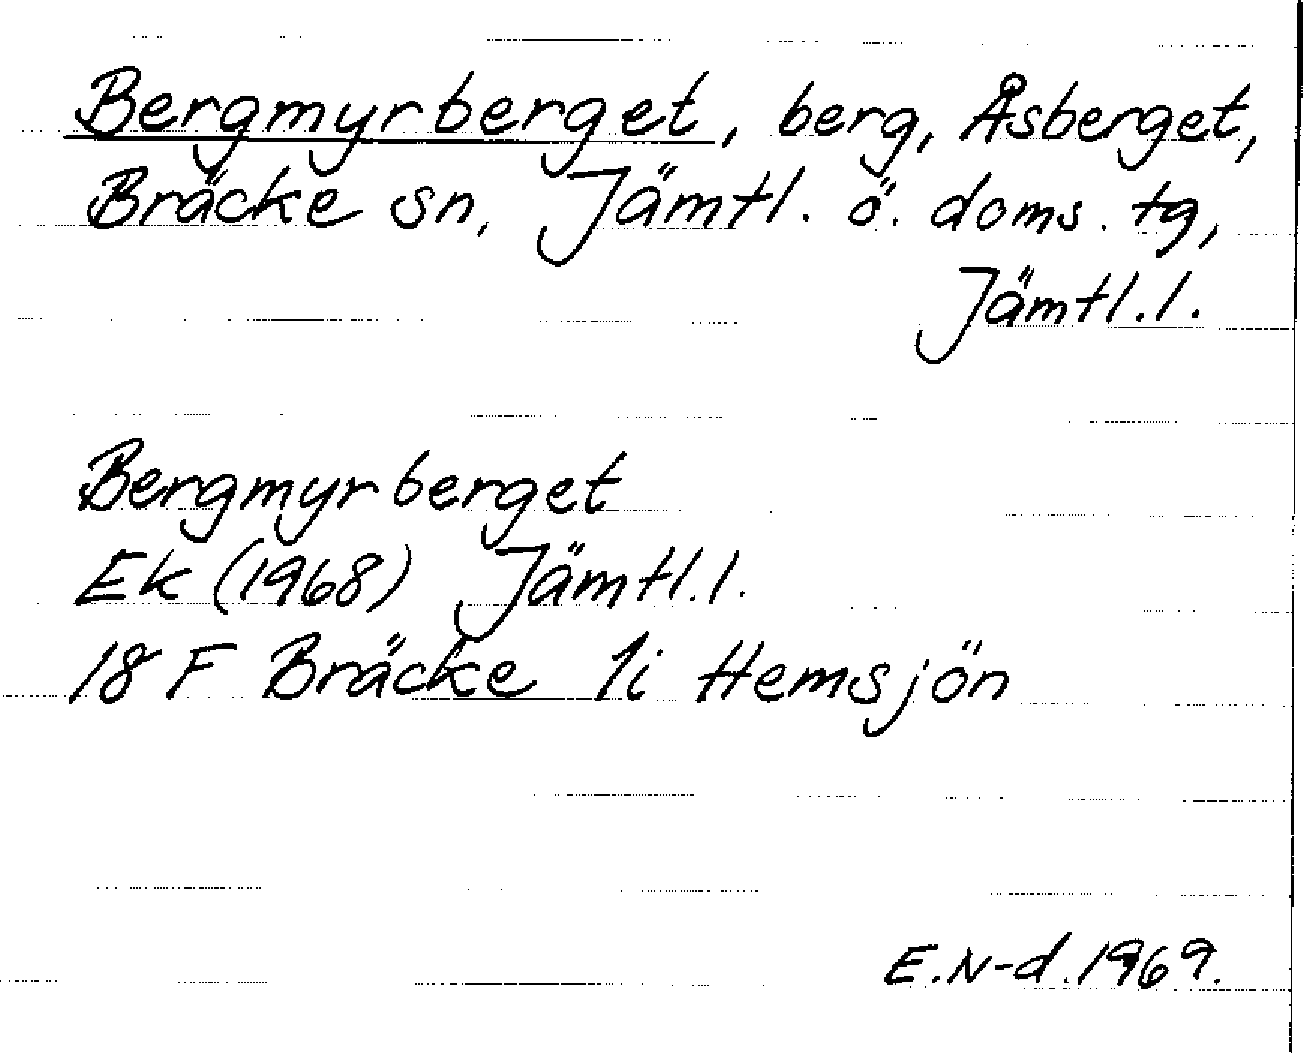 Bergmyrberget, berg, Åsberget,
Bräcke sn, Jämtl. ö. doms. tg,
Jämtl. l.
Bergmyrberget
Ek (1968) Jämtl. l.
18 F Bräcke 1i Hemsjön
E. N-d. 1969.